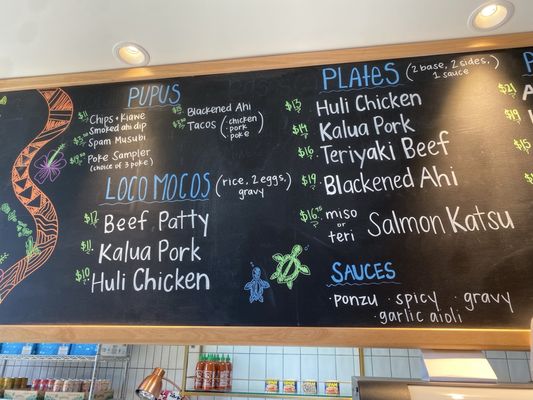 PUPUS
$11 Chips + Kiawe
Smoked ahi dip
Spam Musubi
Poke Sampler
(choice of 3 poke)
Blackened Ahi
Tacos (chicken, pork, poke)
LOCO MOCOS (rice, 2 eggs, gravy)
$12 Beef Patty
$11 Kalua Pork
$10 Huli Chicken
PLATES (2 base, 2 sides, 1 sauce)
$13 Huli Chicken
$14 Kalua Pork
$16 Teriyaki Beef
$19 Blackened Ahi
miso or teri Salmon Katsu
SAUCES
· ponzu · spicy · gravy
· garlic aioli